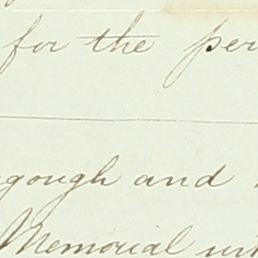 for the per
gough and
Memorial wit